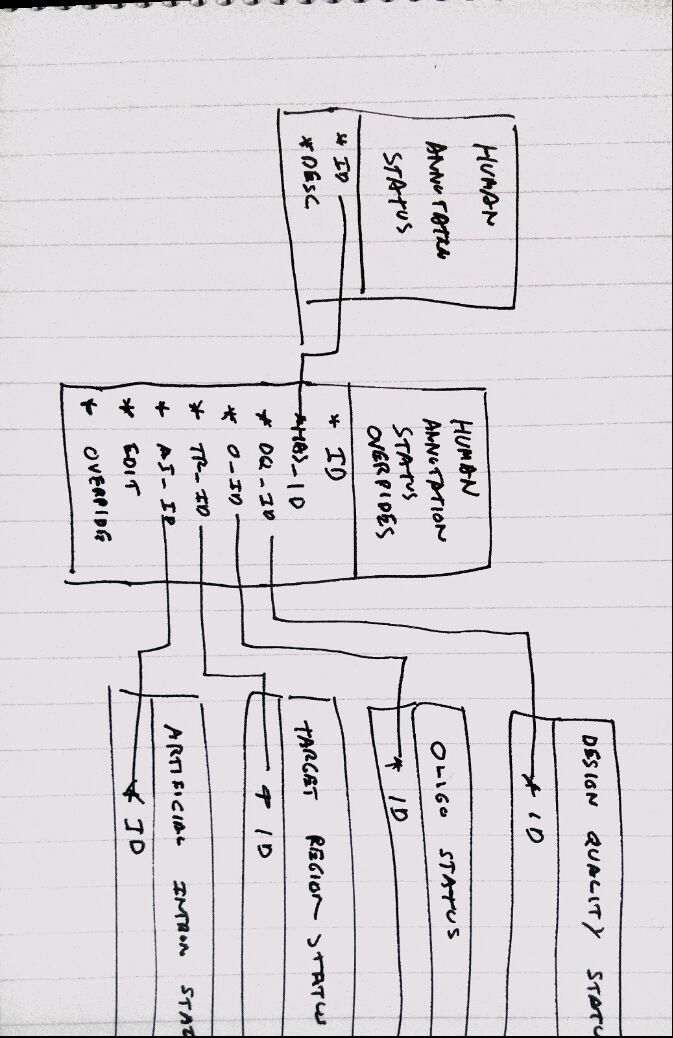 HUMAN
ANNOTATION
STATUS
* ID
* DESC
HUMAN
ANNOTATION
STATUS
OVERRIDES
* ID
* HAS_ID
* DQ_ID
* O_ID
* TR_ID
* AI_ID
* EDIT
* OVERRIDE
DESIGN QUALITY STATU
* ID
OLIGO STATUS
* ID
TARGET REGION STATUS
* ID
ARTIFICIAL INTRON STAT
* ID